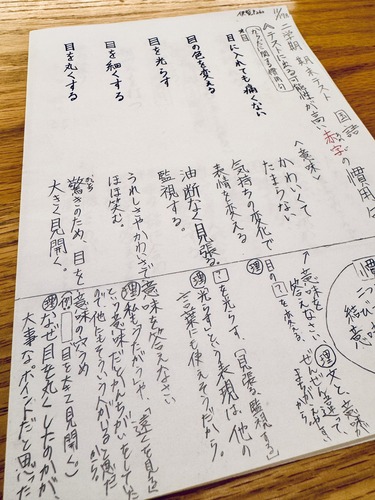 11/
二学期 期末テスト 国語
テストに出る可能性が高い赤字の慣用句
からだに関する慣用句
目
〈意味〉
目に入れても痛くない
かわいくて
たまらない
目の色を変える
気持ちの変化で
表情を変える
目を光らす
油断なく見張る、
監視する。
目を細くする
うれしさやかわいさで
ほほ笑む。
目を丸くする
驚きのため、目を
大きく見開く。
慣
結
意
↑意味を
答えなさい
目の?を変える。
理
意味が
違って
ぜんぜん
?を光らす。[見張る、監視する]
理
「光らす」という表現は、他の
言葉にも使えそうだから。
意味を答えなさい
理
「遠くを見る」
という意味だとかんちがいをしていた
が、他にもそういう人がいると思った
から。
意味の穴うめ
例
目を大きく見開く。
理
なぜ目を丸くしたのかが、
大事なポイントだと思った